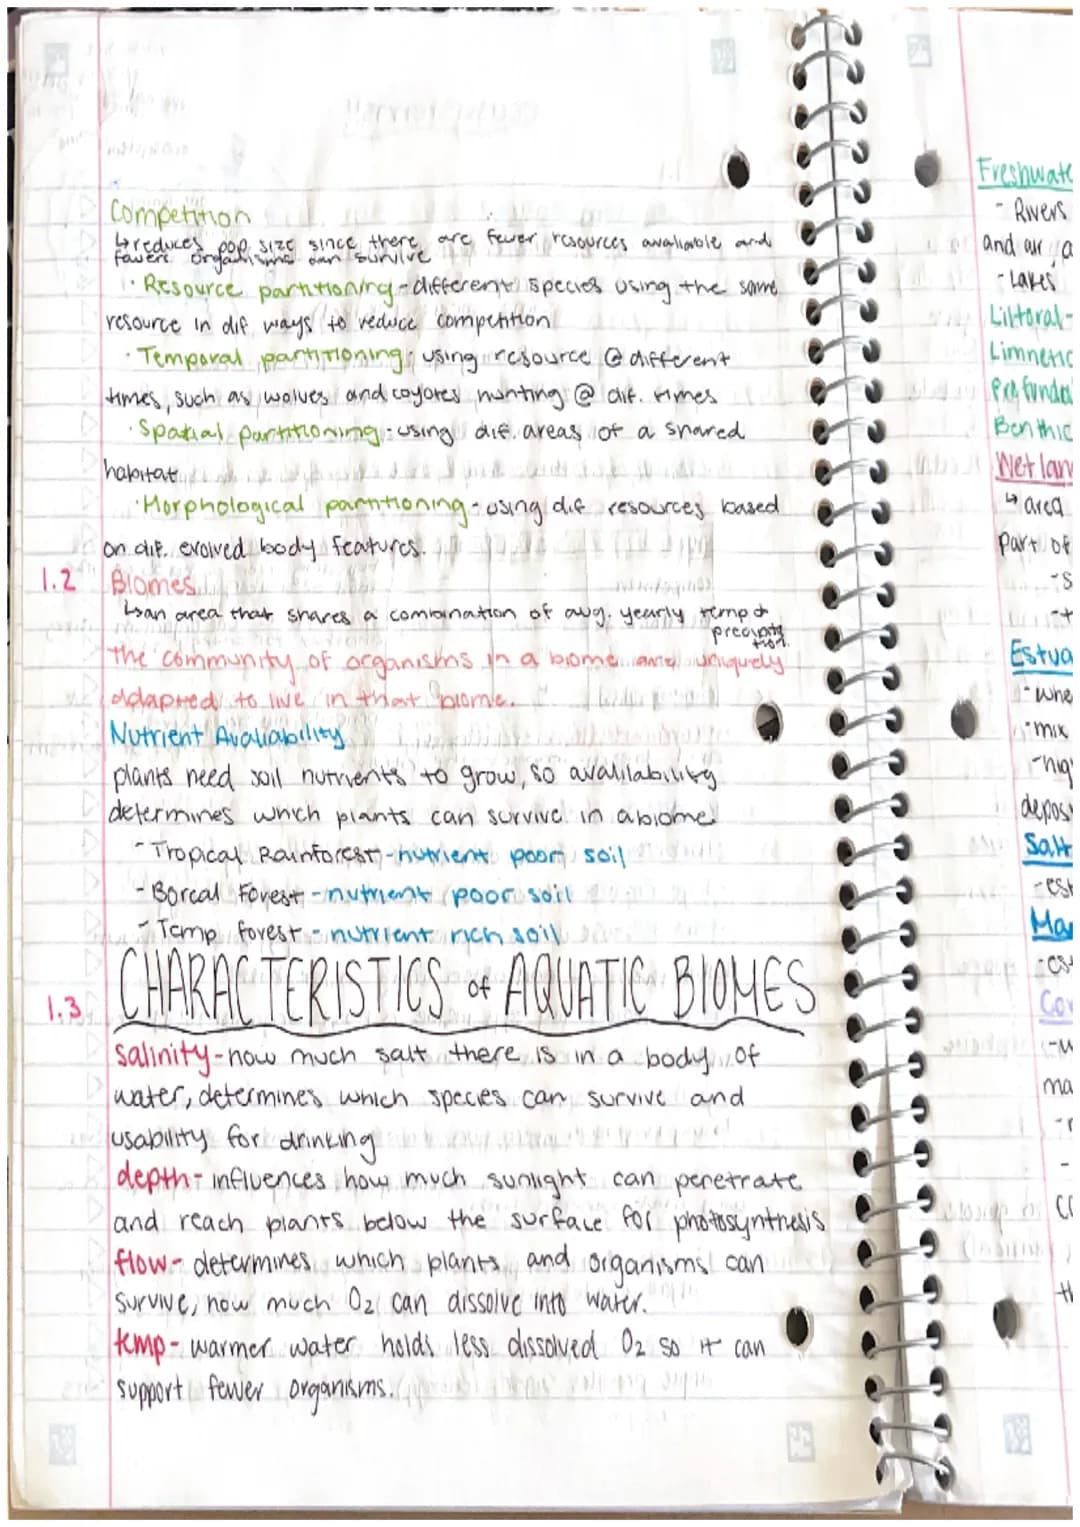 Competition
↳reduces pop size since there are fewer resources avaliable and
fewere organisms can survive
· Resource partitioning - different species using the same
resource in dif ways to reduce competition
· Temporal partitioning: using resource @ different
times, such as wolves and coyotes hunting @ dif. times
· Spatial partitioning - using dif. areas of a shared
habitat
· Morphological partitioning - using dif resources based
on dif. evolved body features.
1.2 Biomes
↳an area that shares a combination of avg. yearly temp &
precipita
tion.
the community of organisms in a biome are uniquely
adapted to live in that biome.
Nutrient Avaliability
plants need soil nutrients to grow, so avalilability
determines which plants can survive in a biome
- Tropical Rainforest - nutrient poor soil
- Boreal Forest - nutrient poor soil
- Temp forest - nutrient rich soil
1.3 CHARACTERISTICS of AQUATIC BIOMES
salinity - how much salt there is in a body of
water, determines which species can survive and
usability for drinking
depth - influences how much sunlight can penetrate
and reach plants below the surface for photosynthesis
flow - determines which plants and organisms can
survive, how much O2 can dissolve into water.
temp - warmer water holds less dissolved O2 so it can
support fewer organisms.
Freshwate
- Rivers
and air, a
- Lakes
Littoral -
Limnetic
Profunda
Benthic
Wetlan
↳ area
part of
- s
- t
Estua
- whe
- mix
- hig
depos
Salt
- est
Ma
- est
Co
- w
ma
- r
-
co
th